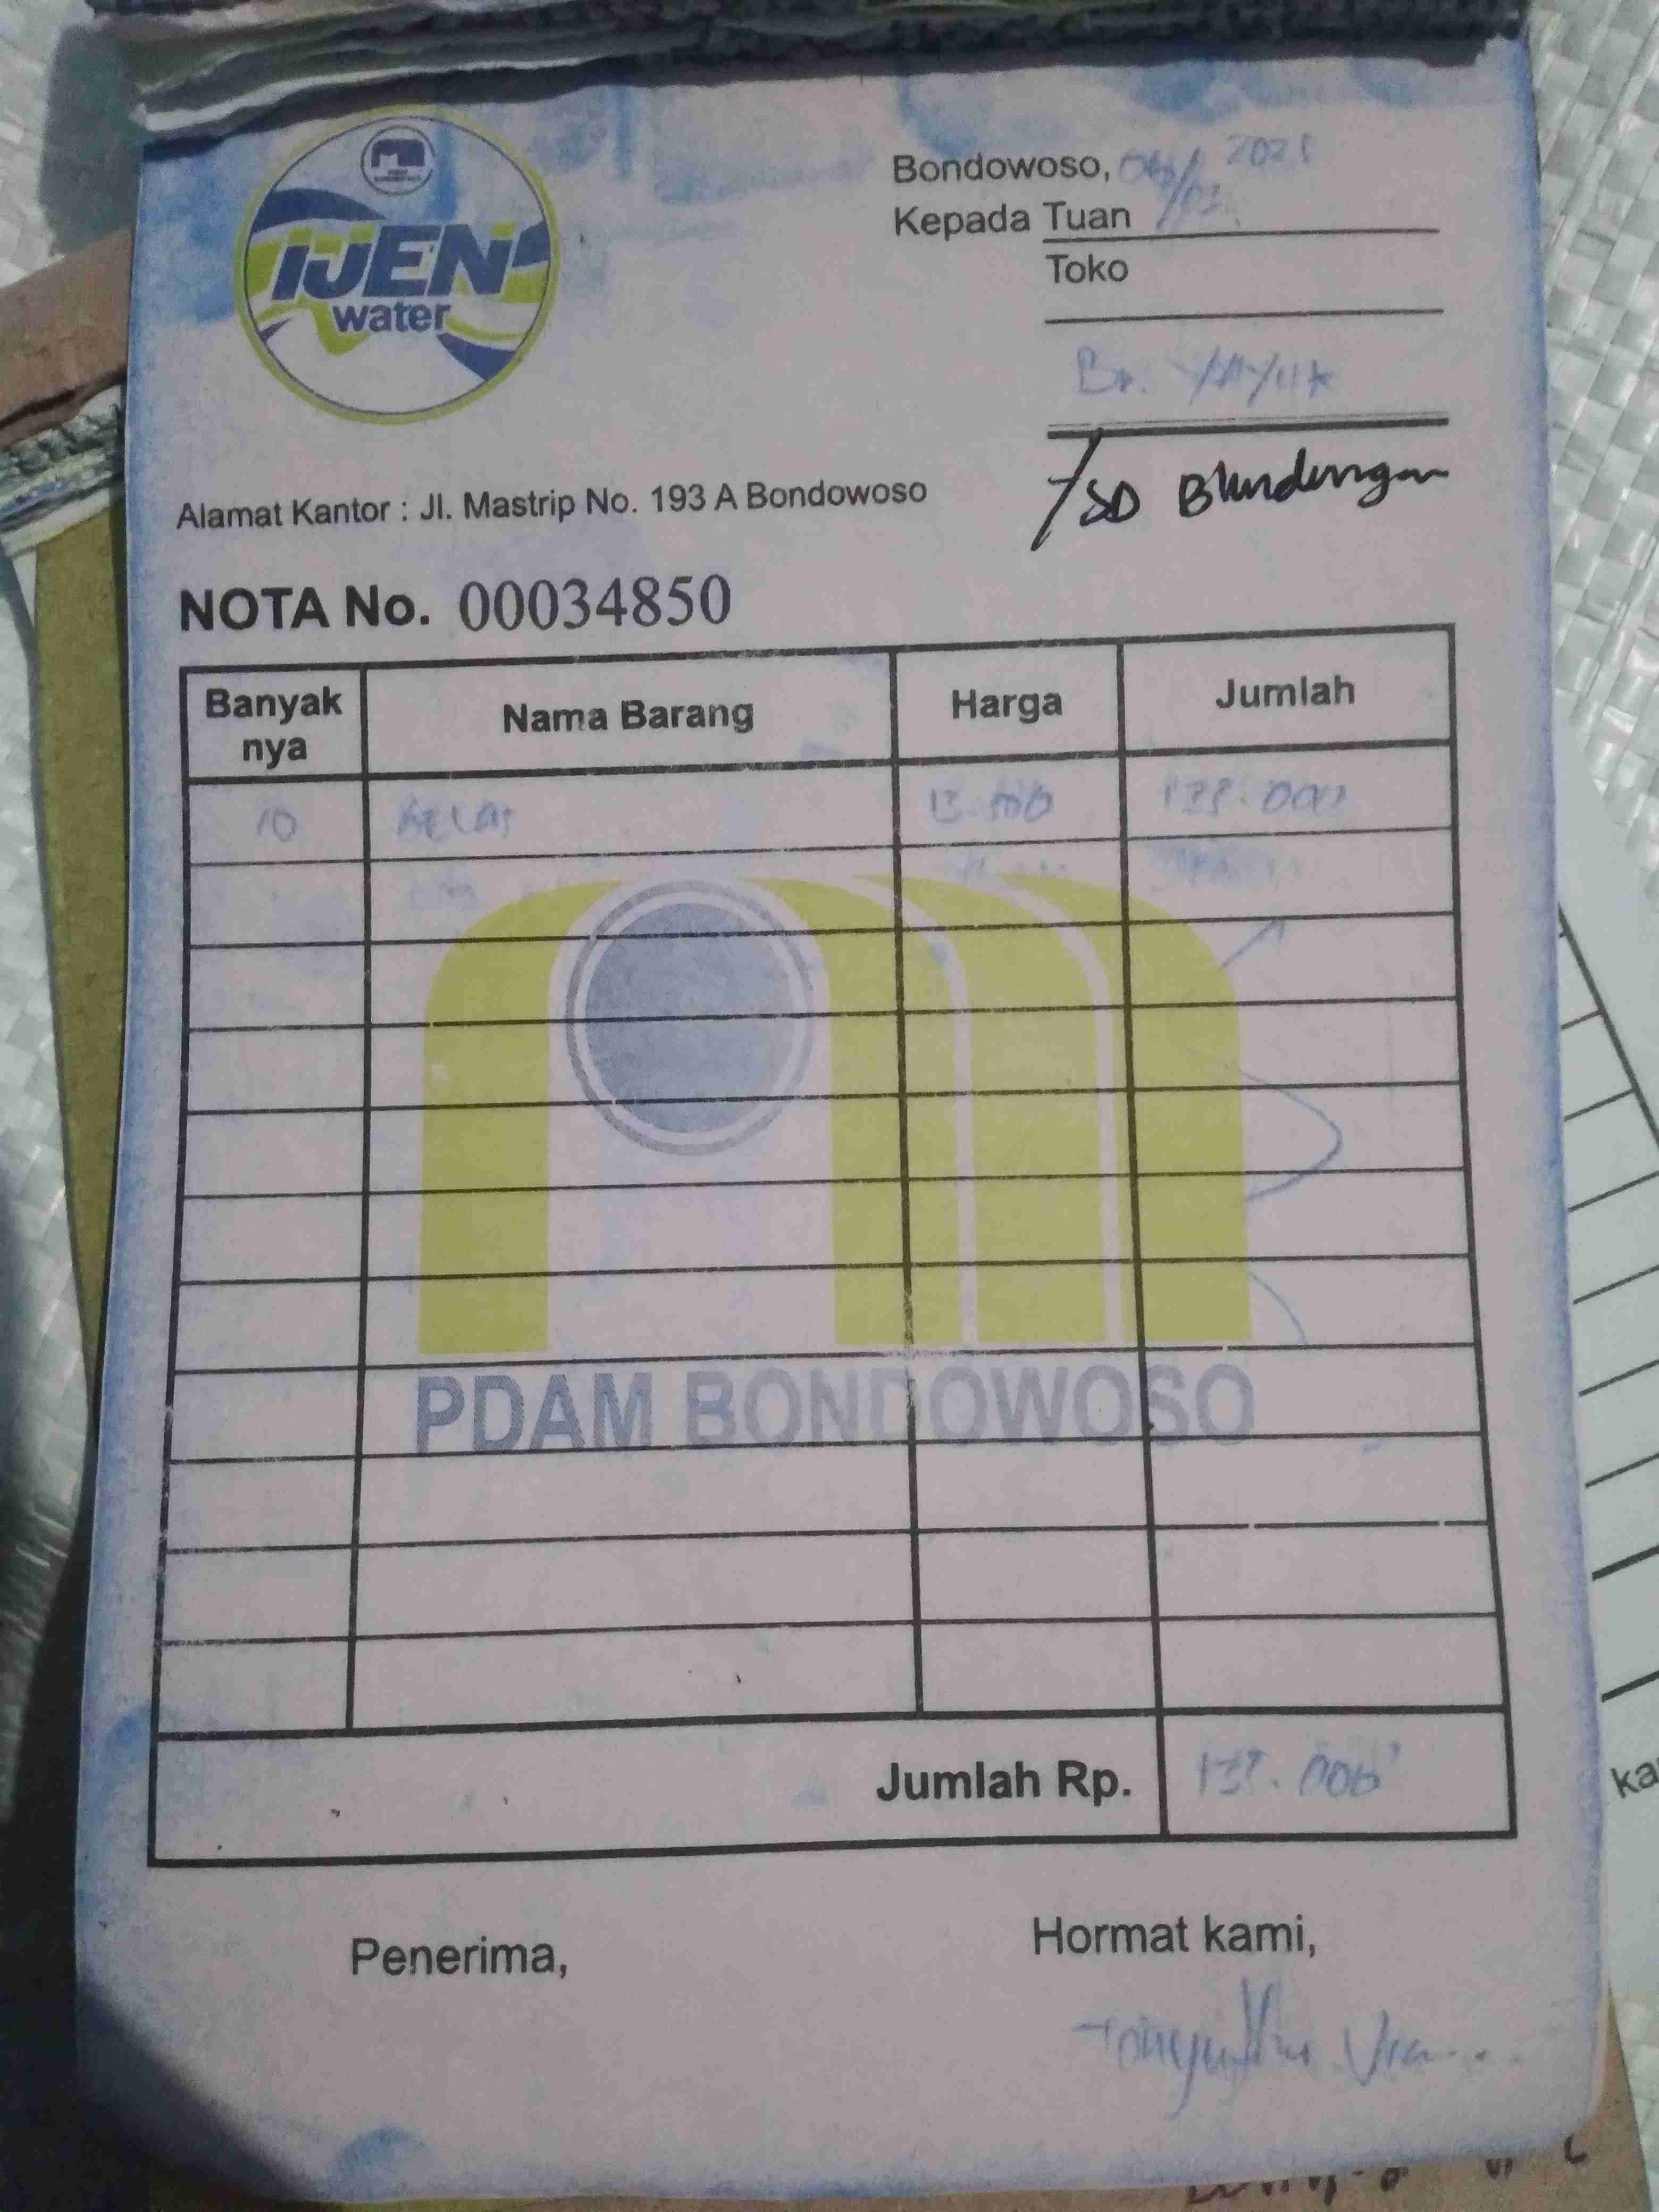 IJEN
water
Bondowoso, 06/03 2021
Kepada Tuan
Toko
Bp. YAYUK
/SD Blindungan
Alamat Kantor : Jl. Mastrip No. 193 A Bondowoso
NOTA No. 00034850
Banyak nya Nama Barang Harga Jumlah
10 GELAS 13.500 135.000
PDAM BONDOWOSO
Jumlah Rp. 135.000
Penerima, Hormat kami,